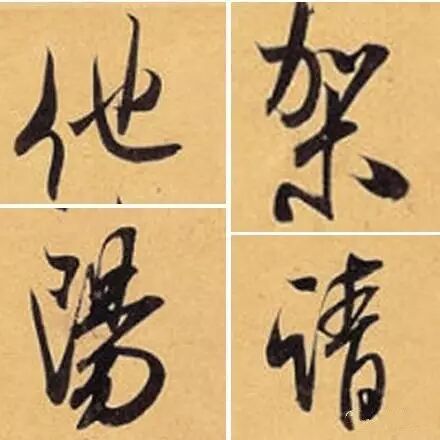 他 架
陽 請